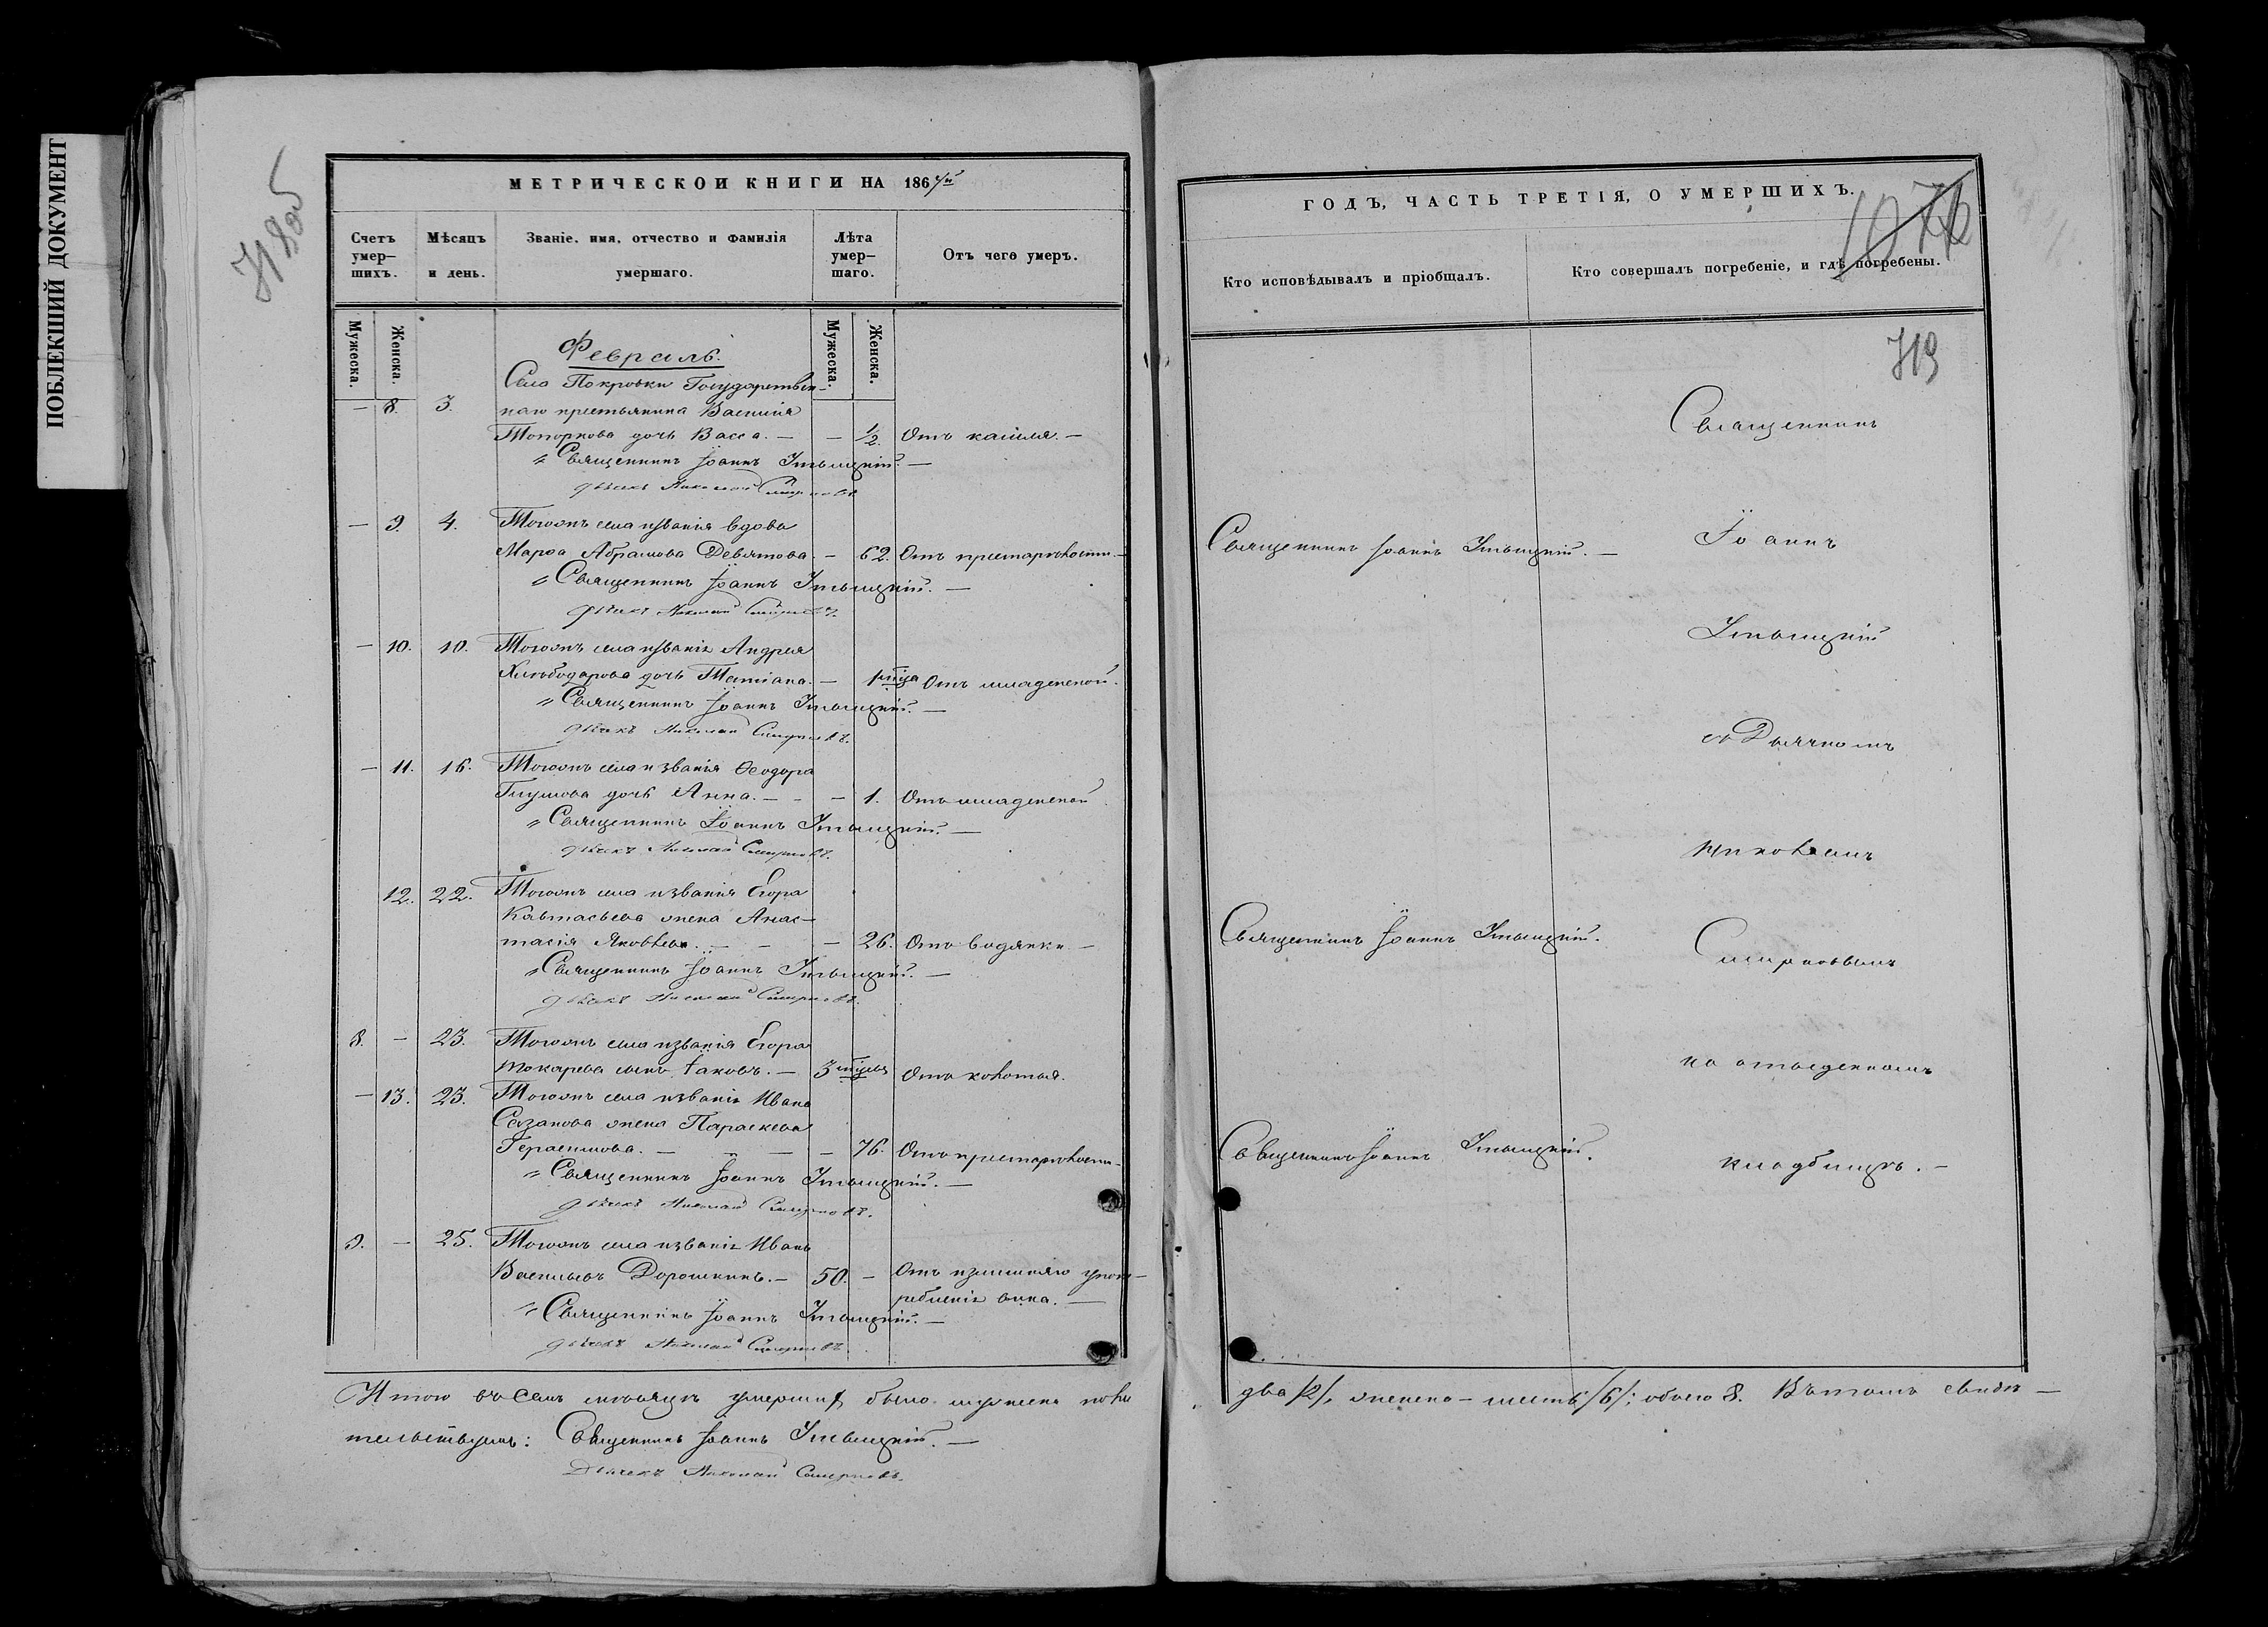 ПОБЛЕКШИЙ ДОКУМЕНТ
МЕТРИЧЕСКОЙ КНИГИ НА 186
Счетъ умер-шихъ.
Мѣсяцъ и день.
Званіе, имя, отчество и фамилія умершаго.
Лѣта умер-шаго.
Отъ чего умеръ.
Мужеска.
Женска.
Мужеска.
Женска.
Февраль.
Села Покровки Государствен-
— 8. 3. наго крестьянина Василія
Топоркова дочь Васса. — — 1/2. Отъ кашля. —
Священникъ Іоаннъ
дьячекъ Николай Смирновъ
— 9. 4. Тогожъ села и званія вдова
Марѳа Абрамова Девятова. — 62. Отъ престарѣлости. —
Священникъ Іоаннъ
дьячекъ Николай Смирновъ.
— 10. 10. Тогожъ села и званія Андрея
Хлѣбодарова дочь Татіана. — Отъ младенской.
Священникъ Іоаннъ
дьячекъ Николай Смирновъ.
— 11. 16. Тогожъ села и званія Ѳеодора
Глумова дочь Анна. — — — 1. Отъ младенской
Священникъ Іоаннъ
дьячекъ Николай Смирновъ.
12. 22. Тогожъ села и званія Егора
жена Анас-
тасія Яковлева. — — — 26. Отъ водянки —
Священникъ Іоаннъ
дьячекъ Николай Смирновъ.
8. — 23. Тогожъ села и званія Егора
Токарева сынъ Іаковъ. — 3 Отъ колотья.
— 13. 23. Тогожъ села и званія Ивана
Сазанова жена Параскева
Герасимова. — — — — 76. Отъ престарѣлости —
Священникъ Іоаннъ
дьячекъ Николай Смирновъ.
9. — 25. Тогожъ села и званія Иванъ
Васильевъ Дорошкинъ. — 50. — Отъ излишняго упот-
ребленія вина. —
Священникъ Іоаннъ
дьячекъ Николай Смирновъ
Итого въ семъ мѣсяцѣ умершихъ было мужеска пола
тельствуемъ: Священникъ Іоаннъ
Дьячекъ Николай Смирновъ.
ГОДЪ, ЧАСТЬ ТРЕТІЯ, О УМЕРШИХЪ.
Кто исповѣдывалъ и пріобщалъ.
Кто совершалъ погребеніе, и гдѣ погребены.
Священникъ
Священникъ Іоаннъ
Іоаннъ
съ Дьячкомъ
Николаемъ
Священникъ Іоаннъ
Смирновымъ
на отведенномъ
Священникъ Іоаннъ
кладбищѣ. —
два /2/, женска — шесть /6/; обоего 8. Въ томъ свидѣ —